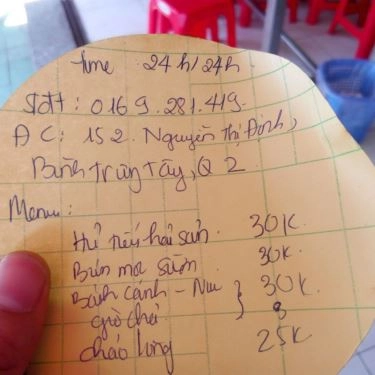 time 24h/24h
Sđt: 0169.281.419
ĐC: 152 Nguyễn Thị Định,
Bình Trưng Tây, Q 2
Menu:
Hủ tiếu hải sản. 30K.
Bún mọc sườn 30K.
Bánh canh - Nui } 30K.
giò chả
cháo lòng 25K